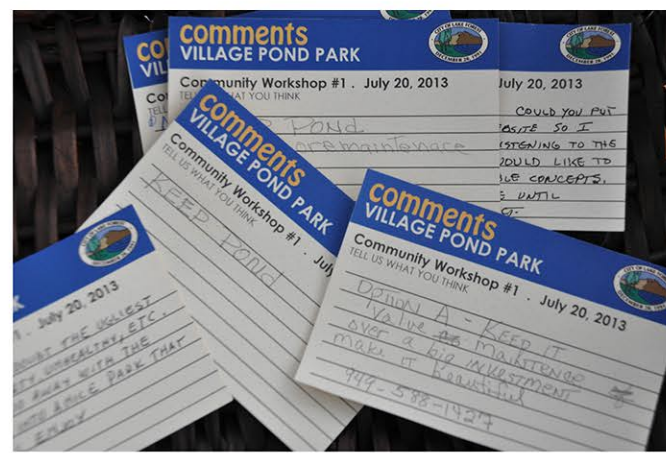 comments
VILLAGE POND PARK
Community Workshop #1 . July 20, 2013
TELL US WHAT YOU THINK
POND
more maintenance
CITY OF LAKE FOREST
DECEMBER 20, 1991
July 20, 2013
COULD YOU PUT
SO I
TO THE
WOULD LIKE TO
CONCEPTS.
UNTIL
comments
VILLAGE POND PARK
Community Workshop #1 . July
TELL US WHAT YOU THINK
KEEP POND
comments
VILLAGE POND PARK
Community Workshop #1 . July 20, 2013
TELL US WHAT YOU THINK
OPTION A - KEEP IT
Value maintenance
over a big investment
make it beautiful
949-588-1427
CITY OF LAKE FOREST
July 20, 2013
THE UGLIEST
UNHEALTHY, ETC.
AWAY WITH THE
INTO A NICE PARK THAT
ENJOY